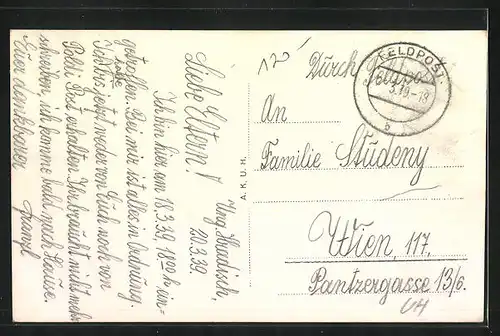 Ung. Hradisch,
20.3.39.
Liebe Eltern!
Ich bin hier am 18.3.39, 18⁰⁰ h ein-
getroffen. Bei mir ist alles in Ordnung.
Ich habe bis jetzt weder von Euch noch von
Poldi Post erhalten. Ihr braucht nicht mehr
schreiben, ich komme bald nach Hause.
Euer dankbarer
A.K.U.H.
120
FELDPOST
3.39-18
b
Durch Feldpost
An
Familie Studeny
Wien, 117.
Pantzergasse 13/6.